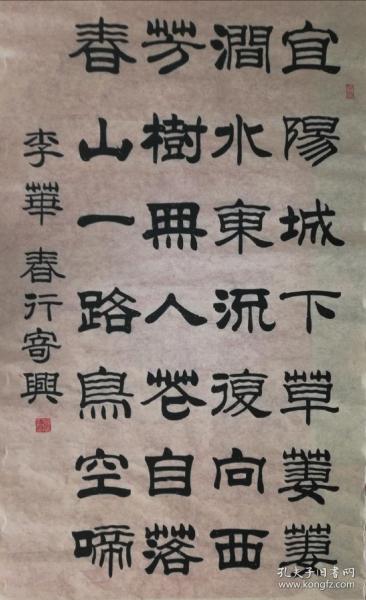 宜陽城下草萋萋
澗水東流復向西
芳樹無人花自落
春山一路鳥空啼
李華春行寄興
孔夫子旧书网
www.kongfz.com